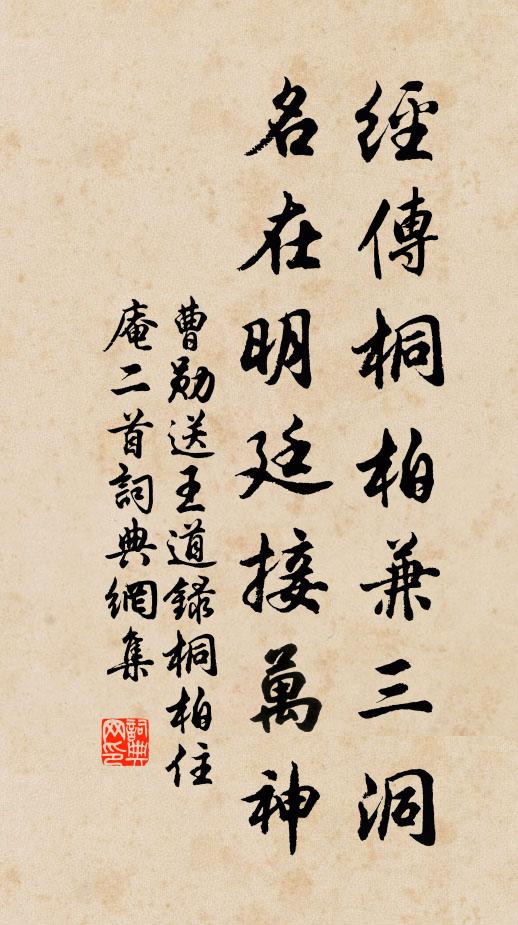 經傳桐柏兼三洞
名在明廷接萬神
曹勛送王道録桐柏住
庵二首詞典網集
詞典网印